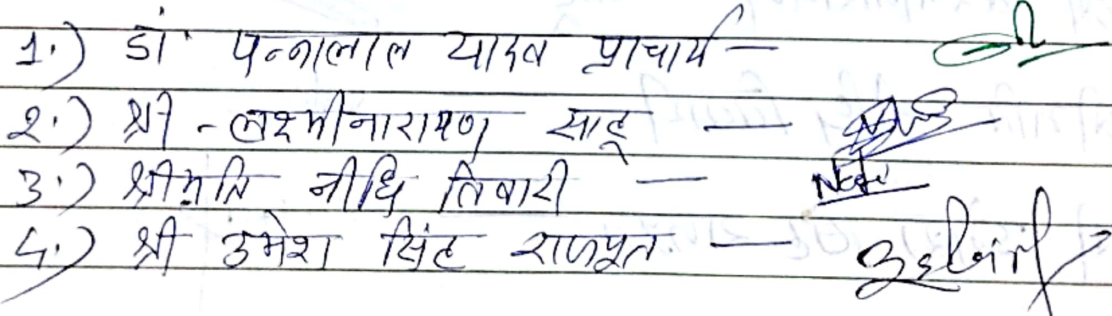 1.) डॉ. पन्नालाल यादव प्राचार्य —
2.) श्री - लक्ष्मीनारायण साहू —
3.) श्रीमति नीधि तिवारी —
4.) श्री उमेश सिंह राजपूत —